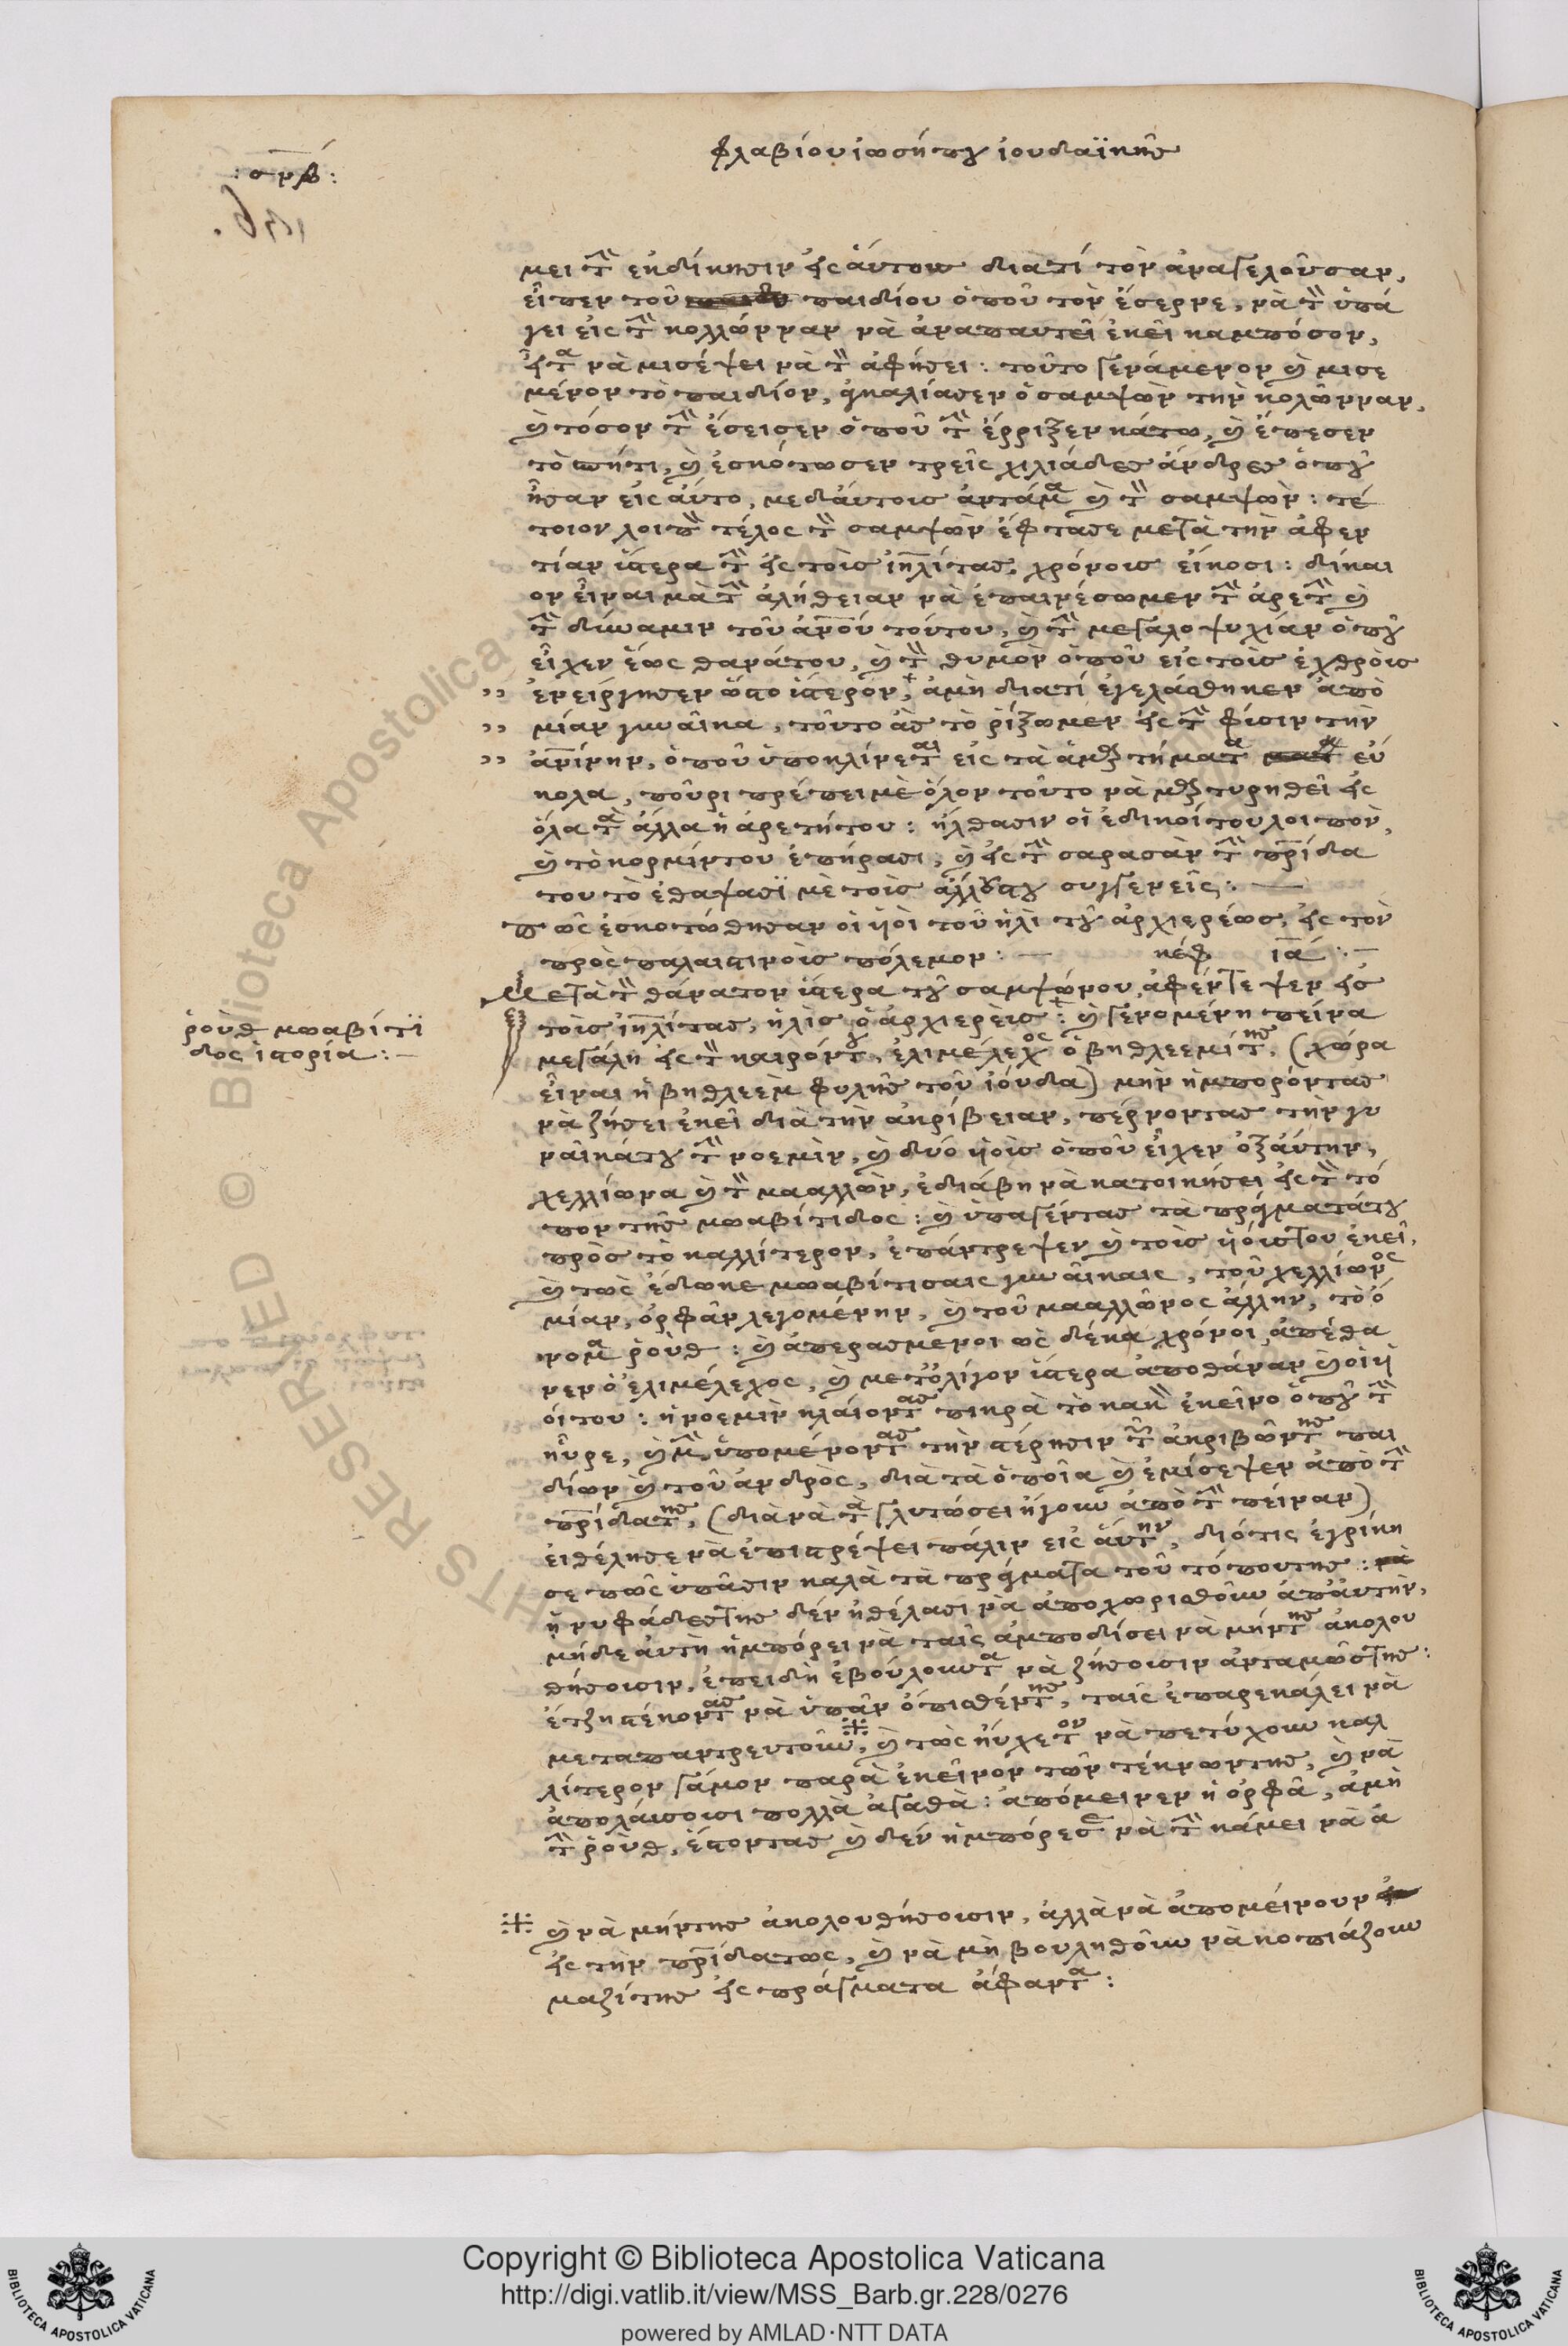 φλαβίου ἰωσήπου ἰουδαϊκῆς
:σνβ:
μει τὴν ἐκδίκησιν εἰς αὐτοὺς διατὶ τὸν ἀναγελοῦσαν,
εἶπεν τοῦ παιδίου ὁποῦ τὸν ἔσερνε, νὰ τὸν ὑπά
γει εἰς τὴν κολλώνναν νὰ ἀναπαυτεῖ ἐκεῖ καμπόσον,
νὰ μισέψει νὰ τὸν ἀφήσει: τοῦτο γενάμενον καὶ μισε
μένον τὸ παιδίον, ἀγκαλίασεν ὁ σαμψὼν τὴν κολῶνναν,
καὶ τόσον τὴν ἔσεισεν ὁποῦ τὴν ἔρριξεν κάτω, καὶ ἔπεσεν
τὸ σπήτι, καὶ ἐσκότωσεν τρεῖς χιλιάδες ἄνδρες ὁποῦ
ἦσαν εἰς αὐτὸ, μεδαύτοις ἀντάμα καὶ τὸν σαμψὼν: τέ
τοιον λοιπὸν τέλος τὸν σαμψὼν ἔφτασε μετὰ τὴν ἀφεν
τίαν ὕστερα τὴν εἰς τοὺς ἰσραηλίτας, χρόνοις εἴκοσι: δίκαι
ον εἶναι μὰ τὴν ἀλήθειαν νὰ ἐπαινέσωμεν τὴν ἀρετὴν καὶ
τὴν δύναμιν τοῦ ἀνθρώπου τούτου, καὶ τὴν μεγαλοψυχίαν ὁποῦ
εἶχεν ἕως θανάτου, καὶ τὸν θυμὸν ὁποῦ εἰς τοὺς ἐχθροὺς
,, ἐνείργησεν ὕστερον, ἀμὴ διατὶ ἐγελάσθηκεν ἀπὸ
,, μίαν γυναῖκα, τοῦτο ἂς τὸ ῥίξωμεν εἰς τὴν φύσιν τὴν
,, ἀνθρωπίνην, ὁποῦ ὑποκλίνεται εἰς τὰ ἁμαρτήματα εὔ
κολα, πρέπει μὲ ὅλον τοῦτο νὰ μαρτυρηθεῖ εἰς
ὅλα τὰ ἄλλα ἡ ἀρετή του: ἤλθασιν οἱ ἐδικοί του λοιπὸν,
καὶ τὸ κορμίν του ἐπήρασι, καὶ εἰς τὴν σαρασὰν τὴν πατρίδα
του τὸ ἐθάψασι μὲ τοὺς ἄλλους του συγγενεῖς:—
πῶς ἐσκοτώθησαν οἱ υἱοὶ τοῦ ἠλὶ τοῦ ἀρχιερέως, εἰς τὸν
πρὸς παλαιστινοὺς πόλεμον:— κεφ ια:—
Μετὰ τὸν θάνατον ὕστερα τοῦ σαμψώνου, ἀφέντεψεν εἰς
τοὺς ἰσραηλίτας, ἠλὶς ὁ ἀρχιερεὺς: καὶ γενομένη πείνα
μεγάλη εἰς τὸν καιρόν του, ἐλιμέλεχος ὁ βηθλεεμίτης, (χώρα
εἶναι ἡ βηθλεὲμ φυλῆς τοῦ ἰούδα) μὴν ἠμπορόντας
νὰ ζήσει ἐκεῖ διὰ τὴν ἀκρίβειαν, πέρνοντας τὴν γυ
ναῖκά του τὴν νοεμὶν, καὶ δύο υἱοὺς ὁποῦ εἶχεν ὀξαύτην,
χελλίωνα καὶ τὸν μααλλὼν, ἐδιάβη νὰ κατοικήσει εἰς τὸν τό
πον τῆς μωαβίτιδος: καὶ ὑπαγένοντας τὰ πράγματά του
πρὸς τὸ καλλίτερον, ἐπάντρεψεν καὶ τοὺς υἱούς του ἐκεῖ,
καὶ τῶς ἔδωκε μωαβίτισαις γυναῖκαις, τοῦ χελλίωνος
μίαν, ὀρφὰν λεγομένην, καὶ τοῦ μααλλῶνος ἄλλην, τὸ ὄ
νομα ῥοὺθ: καὶ ἀπερασμένοι ὡς δέκα χρόνοι, ἀπέθα
νεν ὁ ἐλιμέλεχος, καὶ μετ' ὀλίγον ὕστερα ἀποθάναν καὶ οἱ υἱ
οί του: ἡ νοεμὶν κλαίοντας πικρὰ τὸ κακὸν ἐκεῖνο ὁποῦ τὴν
ηὗρε, καὶ μὴν ὑπομένοντας τὴν στέρησιν τῶν ἀκριβῶν της παι
δίων καὶ τοῦ ἀνδρὸς, διὰ τὰ ὁποῖα καὶ ἐμίσεψεν ἀπὸ τὴν
πατρίδα της, (διὰ νὰ τὰ γλυτώσει ἤγουν ἀπὸ τὴν πείναν)
ἐθέλησε νὰ ἐπιστρέψει πάλιν εἰς αὐτὴν, διότις ἐγρίκη
σε πῶς ὑπᾶσιν καλὰ τὰ πράγματα τοῦ τόπου της:
ἡ νυφάδες της δὲν ἠθέλασι νὰ ἀποχωρισθοῦν ἀπαύτην,
μήδε αὐτὴ ἠμπόρει νὰ ταῖς ἀμποδίσει νὰ μήν της ἀκολου
θήσουσιν, ἐπειδὴ ἐβούλουντα νὰ ζήσουσιν ἀντάμως της:
ἔτζη στέκοντας νὰ ὑπᾶν ὀπισθέν της, ταῖς ἐπαρεκάλει νὰ
μεταπαντρευτοῦν, ※ καὶ τῶς ηὔχετον νὰ πετύχουν καλ
λίτερον γάμον παρὰ ἐκεῖνον τῶν τέκνων της, καὶ νὰ
ἀπολαύσουσι πολλὰ ἀγαθὰ: ἀπόμεινεν ἡ ὀρφᾶ, ἀμὴ
τὴν ῥοὺθ, ἔστοντας καὶ δὲν ἠμπόρεσε νὰ τὴν κάμει νὰ ἀ
※ καὶ νὰ μήν της ἀκολουθήσουσιν, ἀλλὰ νὰ ἀπομείνουν
εἰς τὴν πατρίδα τως, καὶ νὰ μὴ βουληθοῦν νὰ κοπιάζουν
μαζί της εἰς πράγματα ἄφαντα:
ῥοὺθ μωαβίτι
δος ἱστορία:—
Copyright © Biblioteca Apostolica Vaticana
http://digi.vatlib.it/view/MSS_Barb.gr.228/0276
powered by AMLAD·NTT DATA
BIBLIOTECA APOSTOLICA VATICANA
BIBLIOTECA APOSTOLICA VATICANA